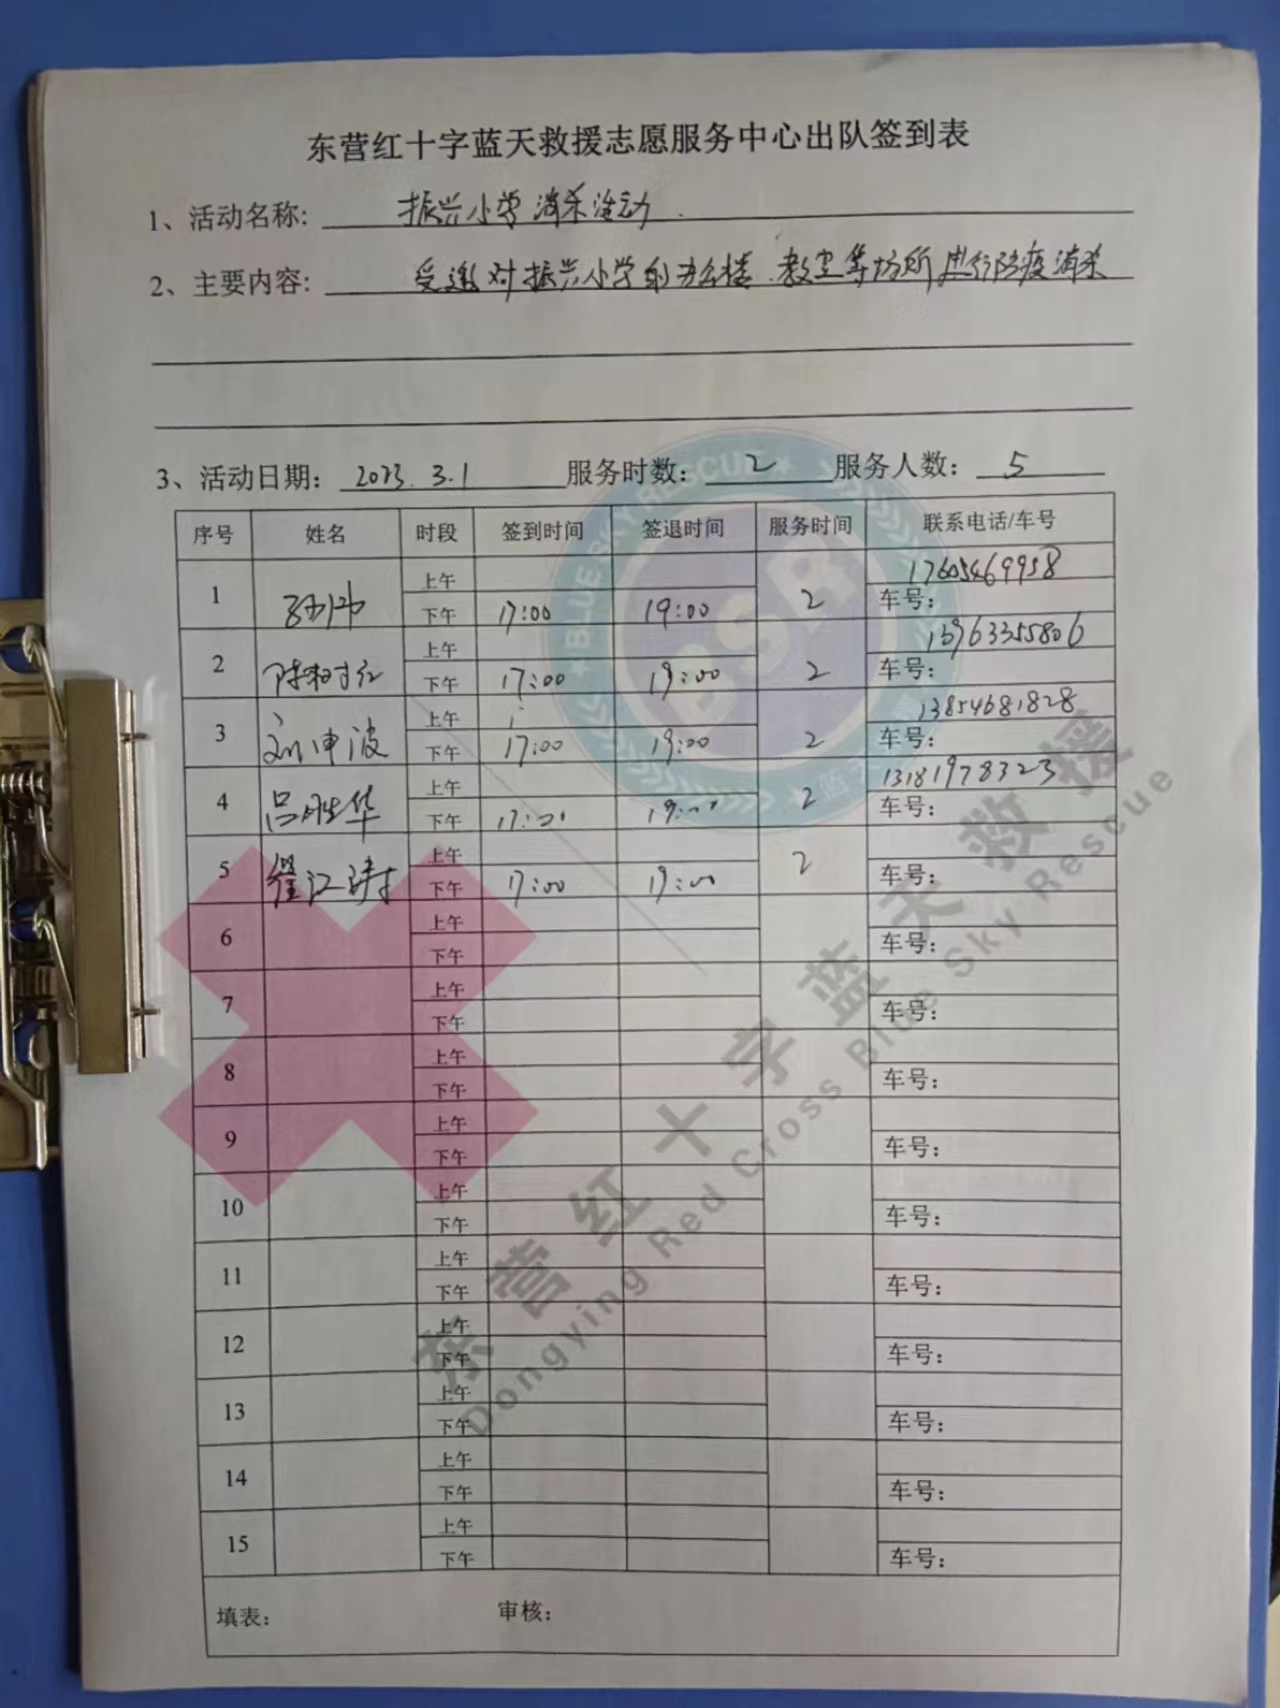 东营红十字蓝天救援志愿服务中心出队签到表
1、活动名称: 振兴小学消杀活动.
2、主要内容: 受邀对振兴小学的办公楼.教室等场所进行防疫消杀
3、活动日期: 2023.3.1 服务时数: 2 服务人数: 5
序号 姓名 时段 签到时间 签退时间 服务时间 联系电话/车号
1 上午 17605469958
下午 17:00 19:00 2 车号:
2 陈树红 上午 13963355806
下午 17:00 19:00 2 车号:
3 刘申波 上午 13854681828
下午 17:00 19:00 2 车号:
4 吕胜华 上午 13181978323
下午 2 车号:
5 江涛 上午
下午 17:00 19:00 2 车号:
6 上午
下午 车号:
7 上午
下午 车号:
8 上午
下午 车号:
9 上午
下午 车号:
10 上午
下午 车号:
11 上午
下午 车号:
12 上午
下午 车号:
13 上午
下午 车号:
14 上午
下午 车号:
15 上午
下午 车号:
填表: 审核:
BLUE SKY RESCUE
BSR
东营红十字蓝天救援
Dongying Red Cross Blue Sky Rescue